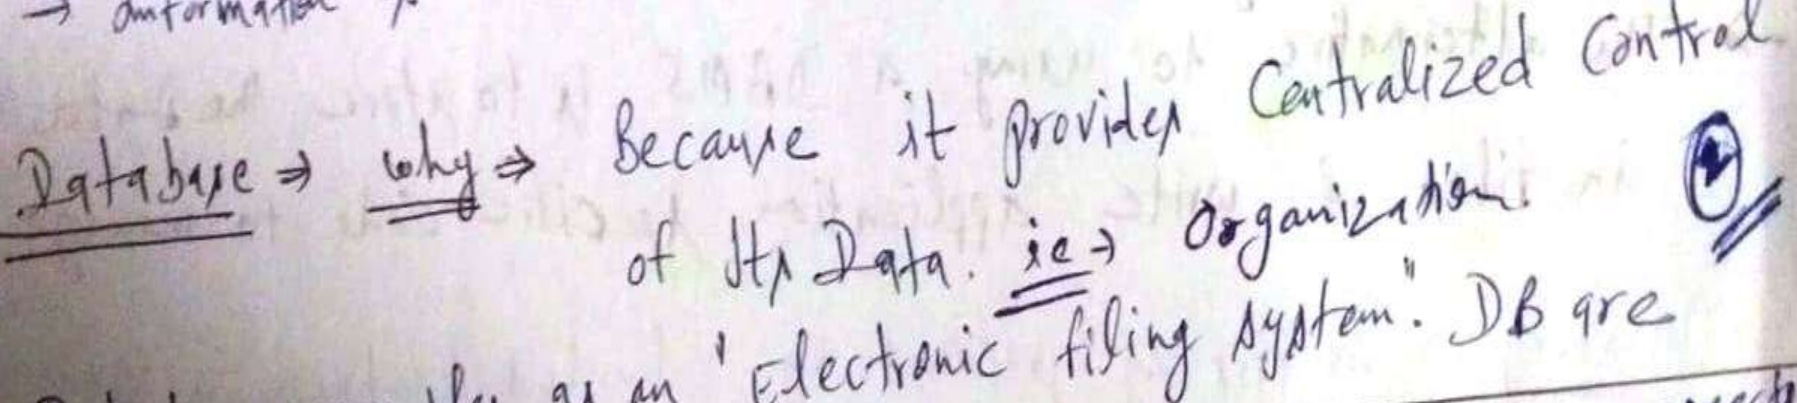 → information
Database ⇒ why ⇒ Because it provides Centralized Control
of Its Data. ie → Organization.
as an "Electronic filing system". DB are